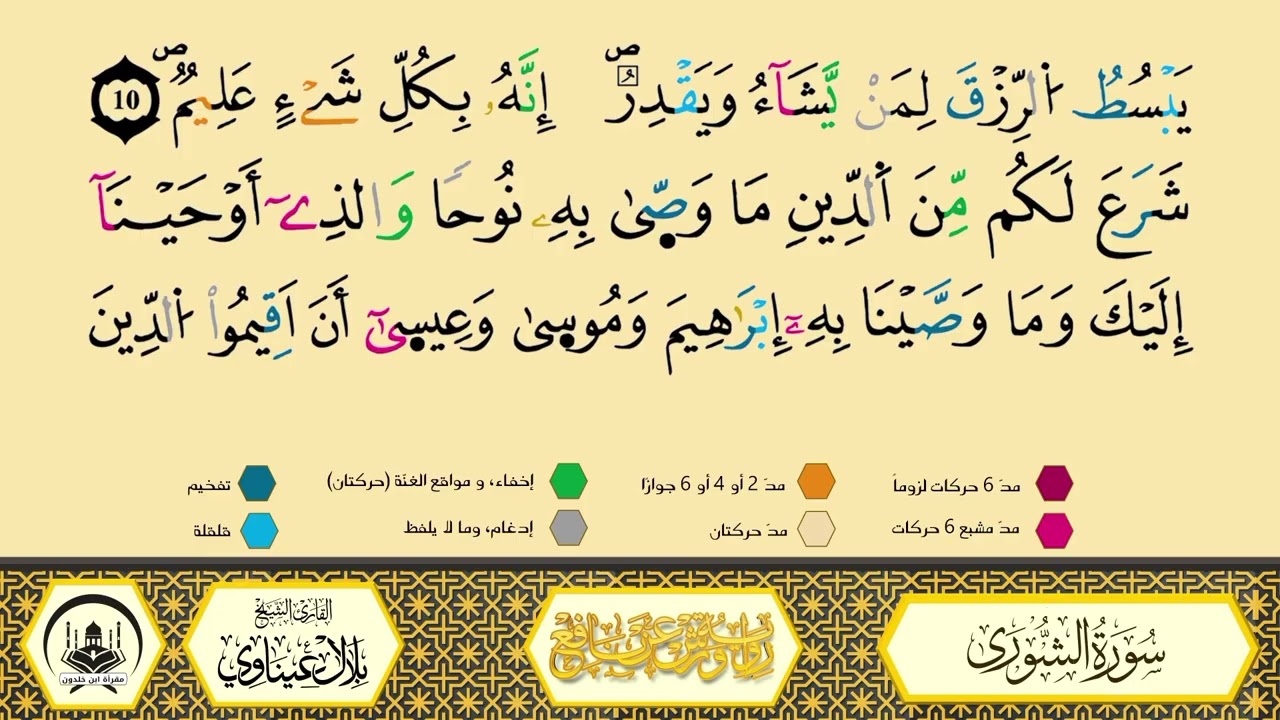 يَبْسُطُ اُ۬لرِّزْقَ لِمَنْ يَّشَآءُ وَيَقْدِرُۖ إِنَّهُۥ بِكُلِّ شَےْءٍ عَلِيمٞۖ 10
شَرَعَ لَكُم مِّنَ اَ۬لدِّينِ مَا وَصّ۪ىٰ بِهِۦ نُوحاٗ وَالذِےٓ أَوْحَيْنَآ
إِلَيْكَ وَمَا وَصَّيْنَا بِهِۦٓ إِبْرَٰهِيمَ وَمُوس۪ىٰ وَعِيس۪ىٰٓ أَنَ اَقِيمُواْ اُ۬لدِّينَ
مدّ 6 حركات لزوماً
مدّ 2 أو 4 أو 6 جوازًا
إخفاء، و مواقع الغنّة (حركتان)
تفخيم
مدّ مشبع 6 حركات
مدّ حركتان
إدغام، وما لا يلفظ
قلقلة
سُورَةُ الشُّورَى
رواية ورش عن نافع
القارئ الشيخ
بلال عيناوي
مقرأة ابن خلدون